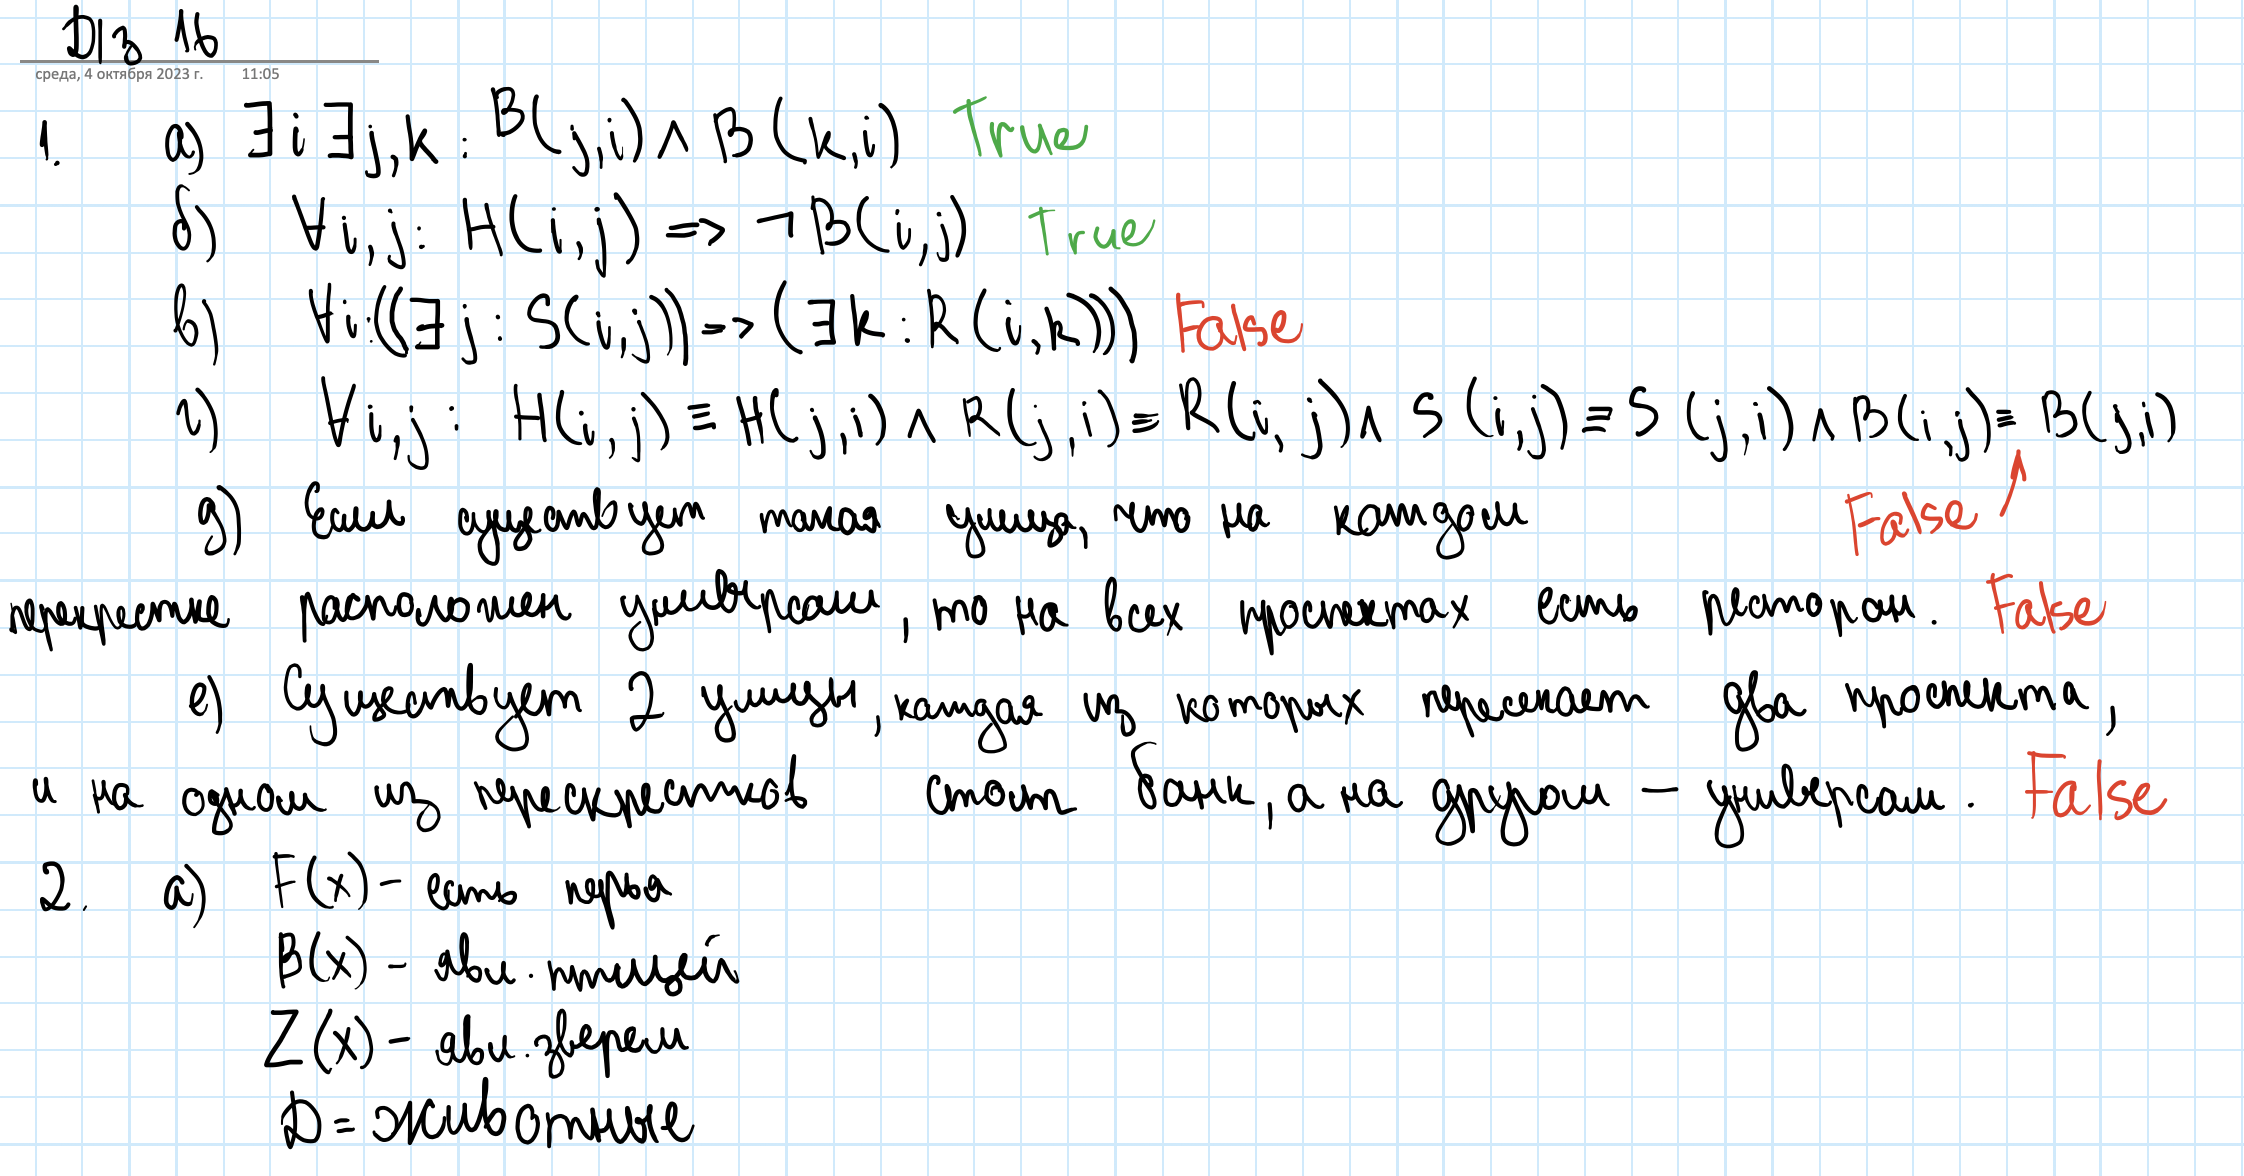 Д/з 16
среда, 4 октября 2023 г. 11:05
1. а) ∃i ∃j,k : B(j,i) ∧ B(k,i) True
б) ∀i,j: H(i,j) => ¬B(i,j) True
в) ∀i:((∃j : S(i,j)) => (∃k : R(i,k))) False
г) ∀i,j : H(i,j) ≡ H(j,i) ∧ R(j,i) ≡ R(i,j) ∧ S(i,j) ≡ S(j,i) ∧ B(i,j) ≡ B(j,i)
False
д) Если существует такая улица, что на каждом
перекрестке расположен универсам, то на всех проспектах есть ресторан. False
е) Существует 2 улицы, каждая из которых пересекает два проспекта,
и на одном из перескрестков стоит банк, а на другом – универсам. False
2. а) F(x) – есть перья
B(x) – явл. птицей
Z(x) – явл. зверем
D = животные